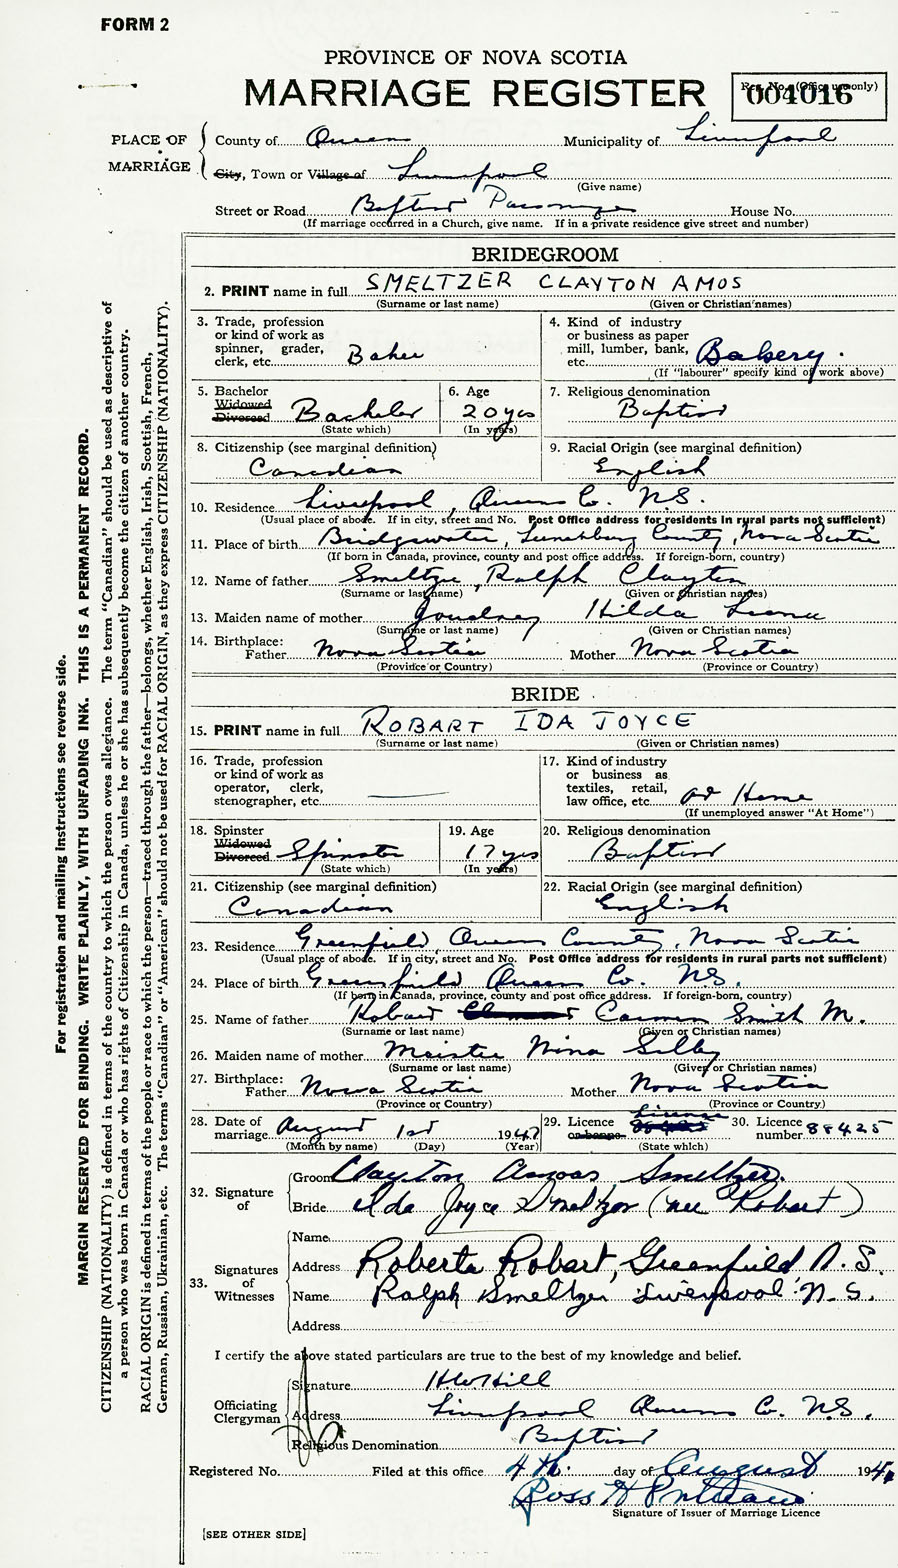 FORM 2
PROVINCE OF NOVA SCOTIA
MARRIAGE REGISTER
Reg. No. (Office use only)
004016
PLACE OF MARRIAGE
County of Queen Municipality of Liverpool
City, Town or Village of Liverpool
(Give name)
Street or Road Baptist Parsonage House No.
(If marriage occurred in a Church, give name. If in a private residence give street and number)
BRIDEGROOM
2. PRINT name in full SMELTZER CLAYTON AMOS
(Surname or last name) (Given or Christian names)
3. Trade, profession or kind of work as spinner, grader, clerk, etc. Baker
4. Kind of industry or business as paper mill, lumber, bank, etc. Bakery.
(If "labourer" specify kind of work above)
5. Bachelor Widowed Divorced Bachelor
(State which)
6. Age 20 yrs
(In years)
7. Religious denomination
Baptist
8. Citizenship (see marginal definition)
Canadian
9. Racial Origin (see marginal definition)
English
10. Residence Liverpool, Queens Co. N.S.
(Usual place of abode. If in city, street and No. Post Office address for residents in rural parts not sufficient)
11. Place of birth Bridgewater, Lunenburg County, Nova Scotia
(If born in Canada, province, county and post office address. If foreign-born, country)
12. Name of father Smeltzer, Ralph Clayton
(Surname or last name) (Given or Christian names)
13. Maiden name of mother Joudrey Hilda Leona
(Surname or last name) (Given or Christian names)
14. Birthplace:
Father Nova Scotia Mother Nova Scotia
(Province or Country) (Province or Country)
BRIDE
15. PRINT name in full ROBART IDA JOYCE
(Surname or last name) (Given or Christian names)
16. Trade, profession or kind of work as operator, clerk, stenographer, etc.
17. Kind of industry or business as textiles, retail, law office, etc. at Home
(If unemployed answer "At Home")
18. Spinster Widowed Divorced Spinster
(State which)
19. Age 17 yrs
(In years)
20. Religious denomination
Baptist
21. Citizenship (see marginal definition)
Canadian
22. Racial Origin (see marginal definition)
English
23. Residence Greenfield, Queens County, Nova Scotia
(Usual place of abode. If in city, street and No. Post Office address for residents in rural parts not sufficient)
24. Place of birth Greenfield Queens Co. N.S.
(If born in Canada, province, county and post office address. If foreign-born, country)
25. Name of father Robart Carmen Smith M.
(Surname or last name) (Given or Christian names)
26. Maiden name of mother Meister Nina Silby
(Surname or last name) (Given or Christian names)
27. Birthplace:
Father Nova Scotia Mother Nova Scotia
(Province or Country) (Province or Country)
28. Date of marriage August 1st 1947
(Month by name) (Day) (Year)
29. Licence or banns License
(State which)
30. Licence number 88425
32. Signature of
Groom Clayton Amos Smeltzer.
Bride Ida Joyce Smeltzer (nee Robart)
33. Signatures of Witnesses
Name
Address Roberta Robart, Greenfield N.S.
Name Ralph Smeltzer Liverpool N.S.
Address
I certify the above stated particulars are true to the best of my knowledge and belief.
Officiating Clergyman
Signature H.W. Hill
Address Liverpool Queens Co. N.S.
Religious Denomination Baptist
Registered No. Filed at this office 4th. day of August 194
Ross H
Signature of Issuer of Marriage Licence
[SEE OTHER SIDE]
For registration and mailing instructions see reverse side.
MARGIN RESERVED FOR BINDING. WRITE PLAINLY, WITH UNFADING INK. THIS IS A PERMANENT RECORD.
CITIZENSHIP (NATIONALITY) is defined in terms of the country to which the person owes allegiance. The term "Canadian" should be used as descriptive of
a person who was born in Canada or who has rights of Citizenship in Canada, unless he or she has subsequently become the citizen of another country.
RACIAL ORIGIN is defined in terms of the people or race to which the person—traced through the father—belongs, whether English, Irish, Scottish, French,
German, Russian, Ukrainian, etc. The terms "Canadian" or "American" should not be used for RACIAL ORIGIN, as they express CITIZENSHIP (NATIONALITY).